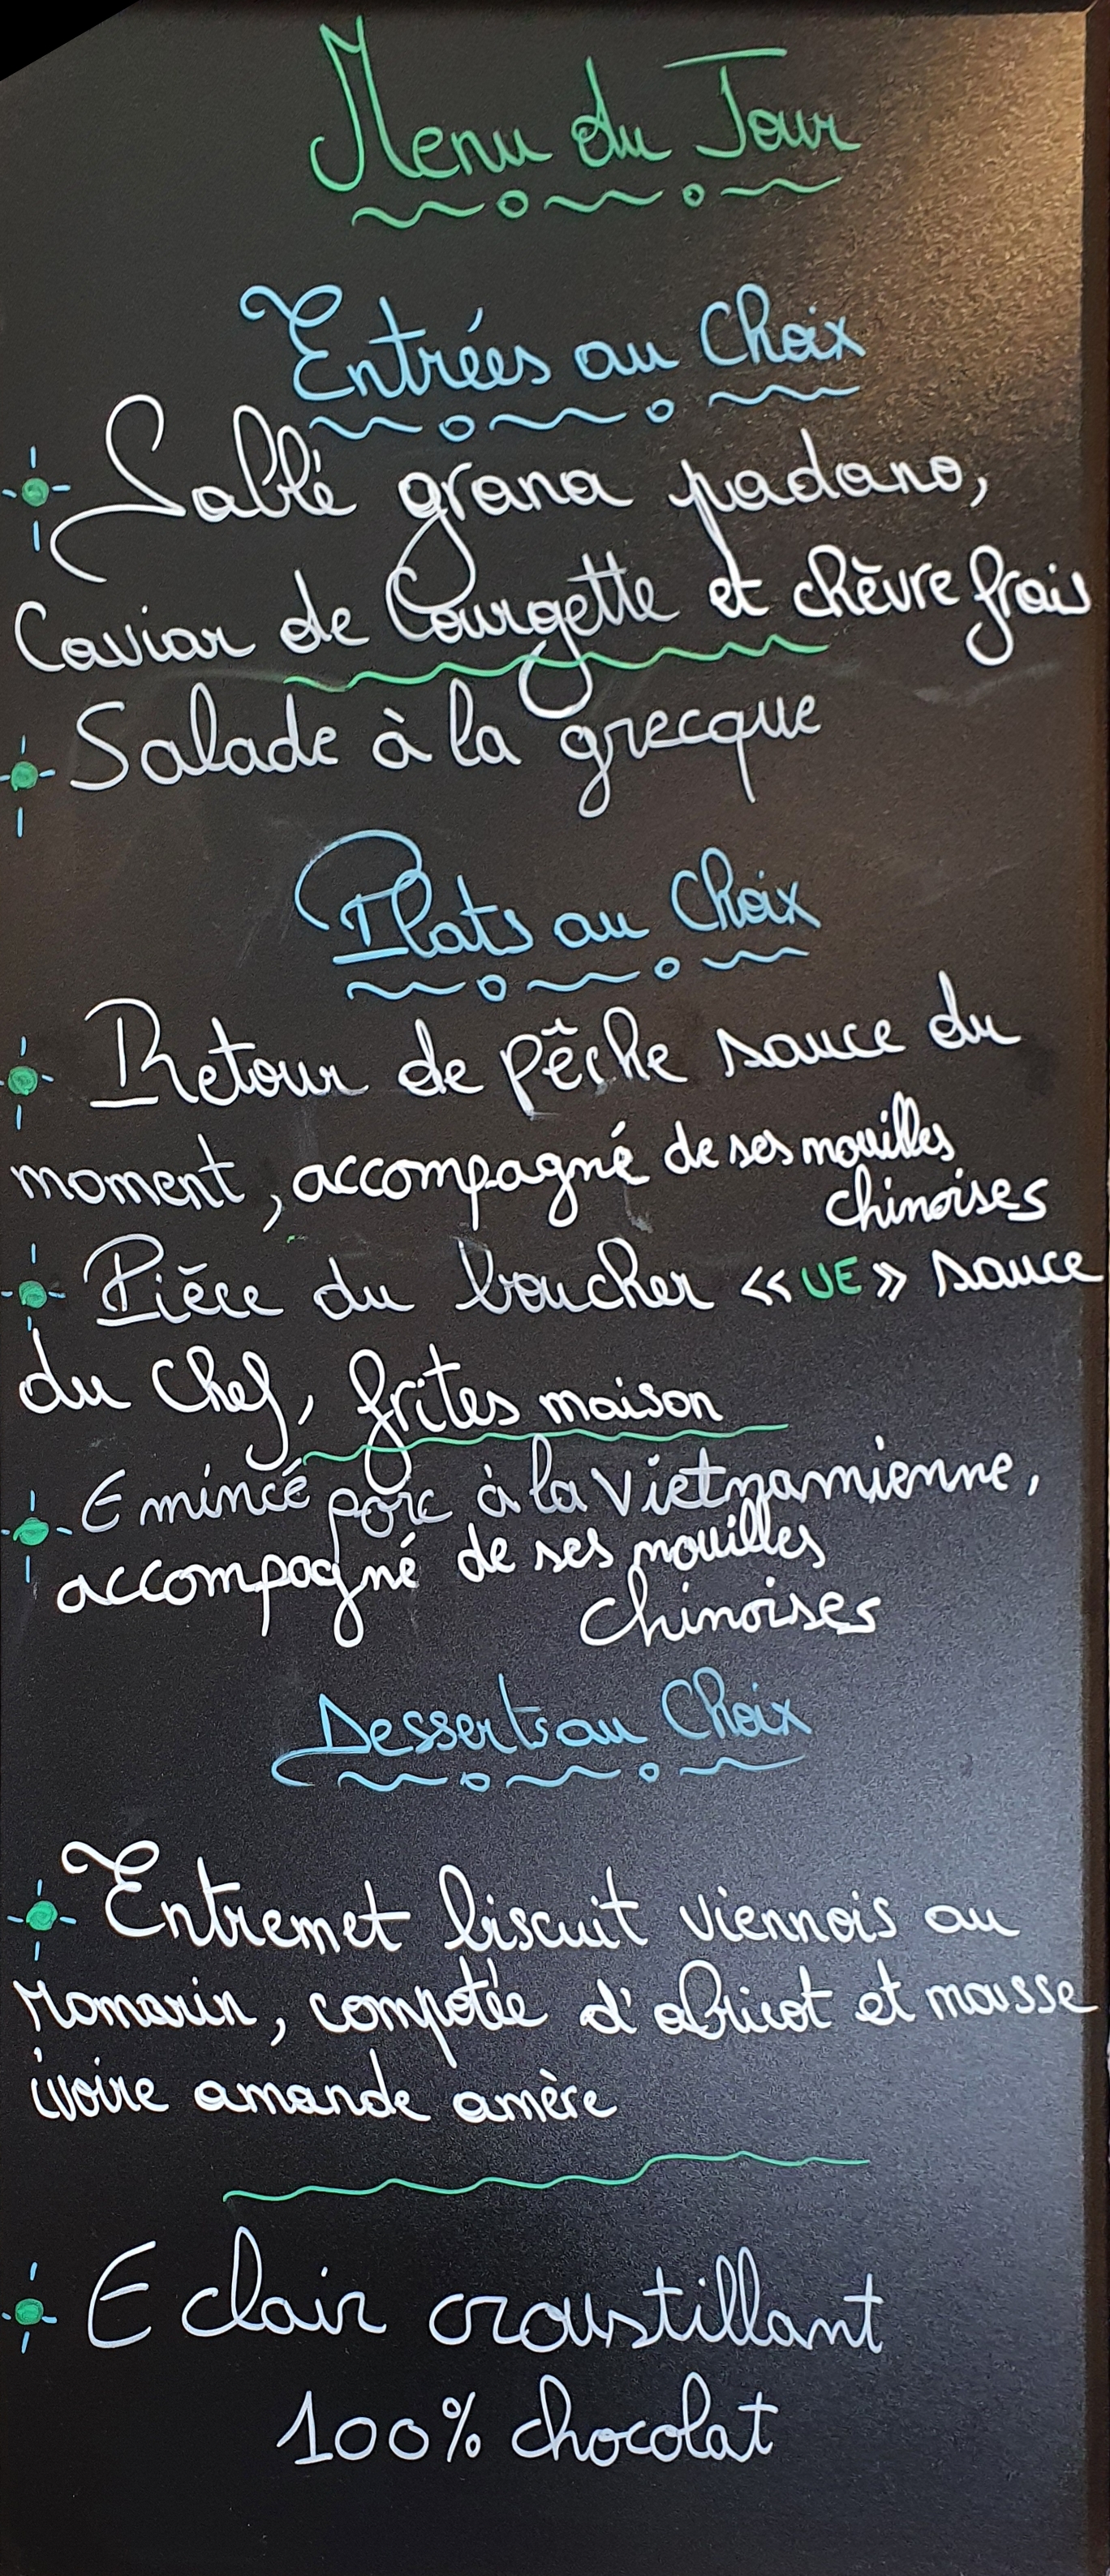 Menu du Jour
Entrées au Choix
Sablé grana padano,
Caviar de Courgette et chèvre frais
Salade à la grecque
Plats au Choix
Retour de pêche sauce du
moment, accompagné de ses nouilles
chinoises
Pièce du boucher «UE» sauce
du Chef, frites maison
Emincé porc à la Vietnamienne,
accompagné de ses nouilles
chinoises
Desserts au Choix
Entremet biscuit viennois au
Romarin, compotée d'abricot et mousse
ivoire amande amère
Eclair croustillant
100% chocolat